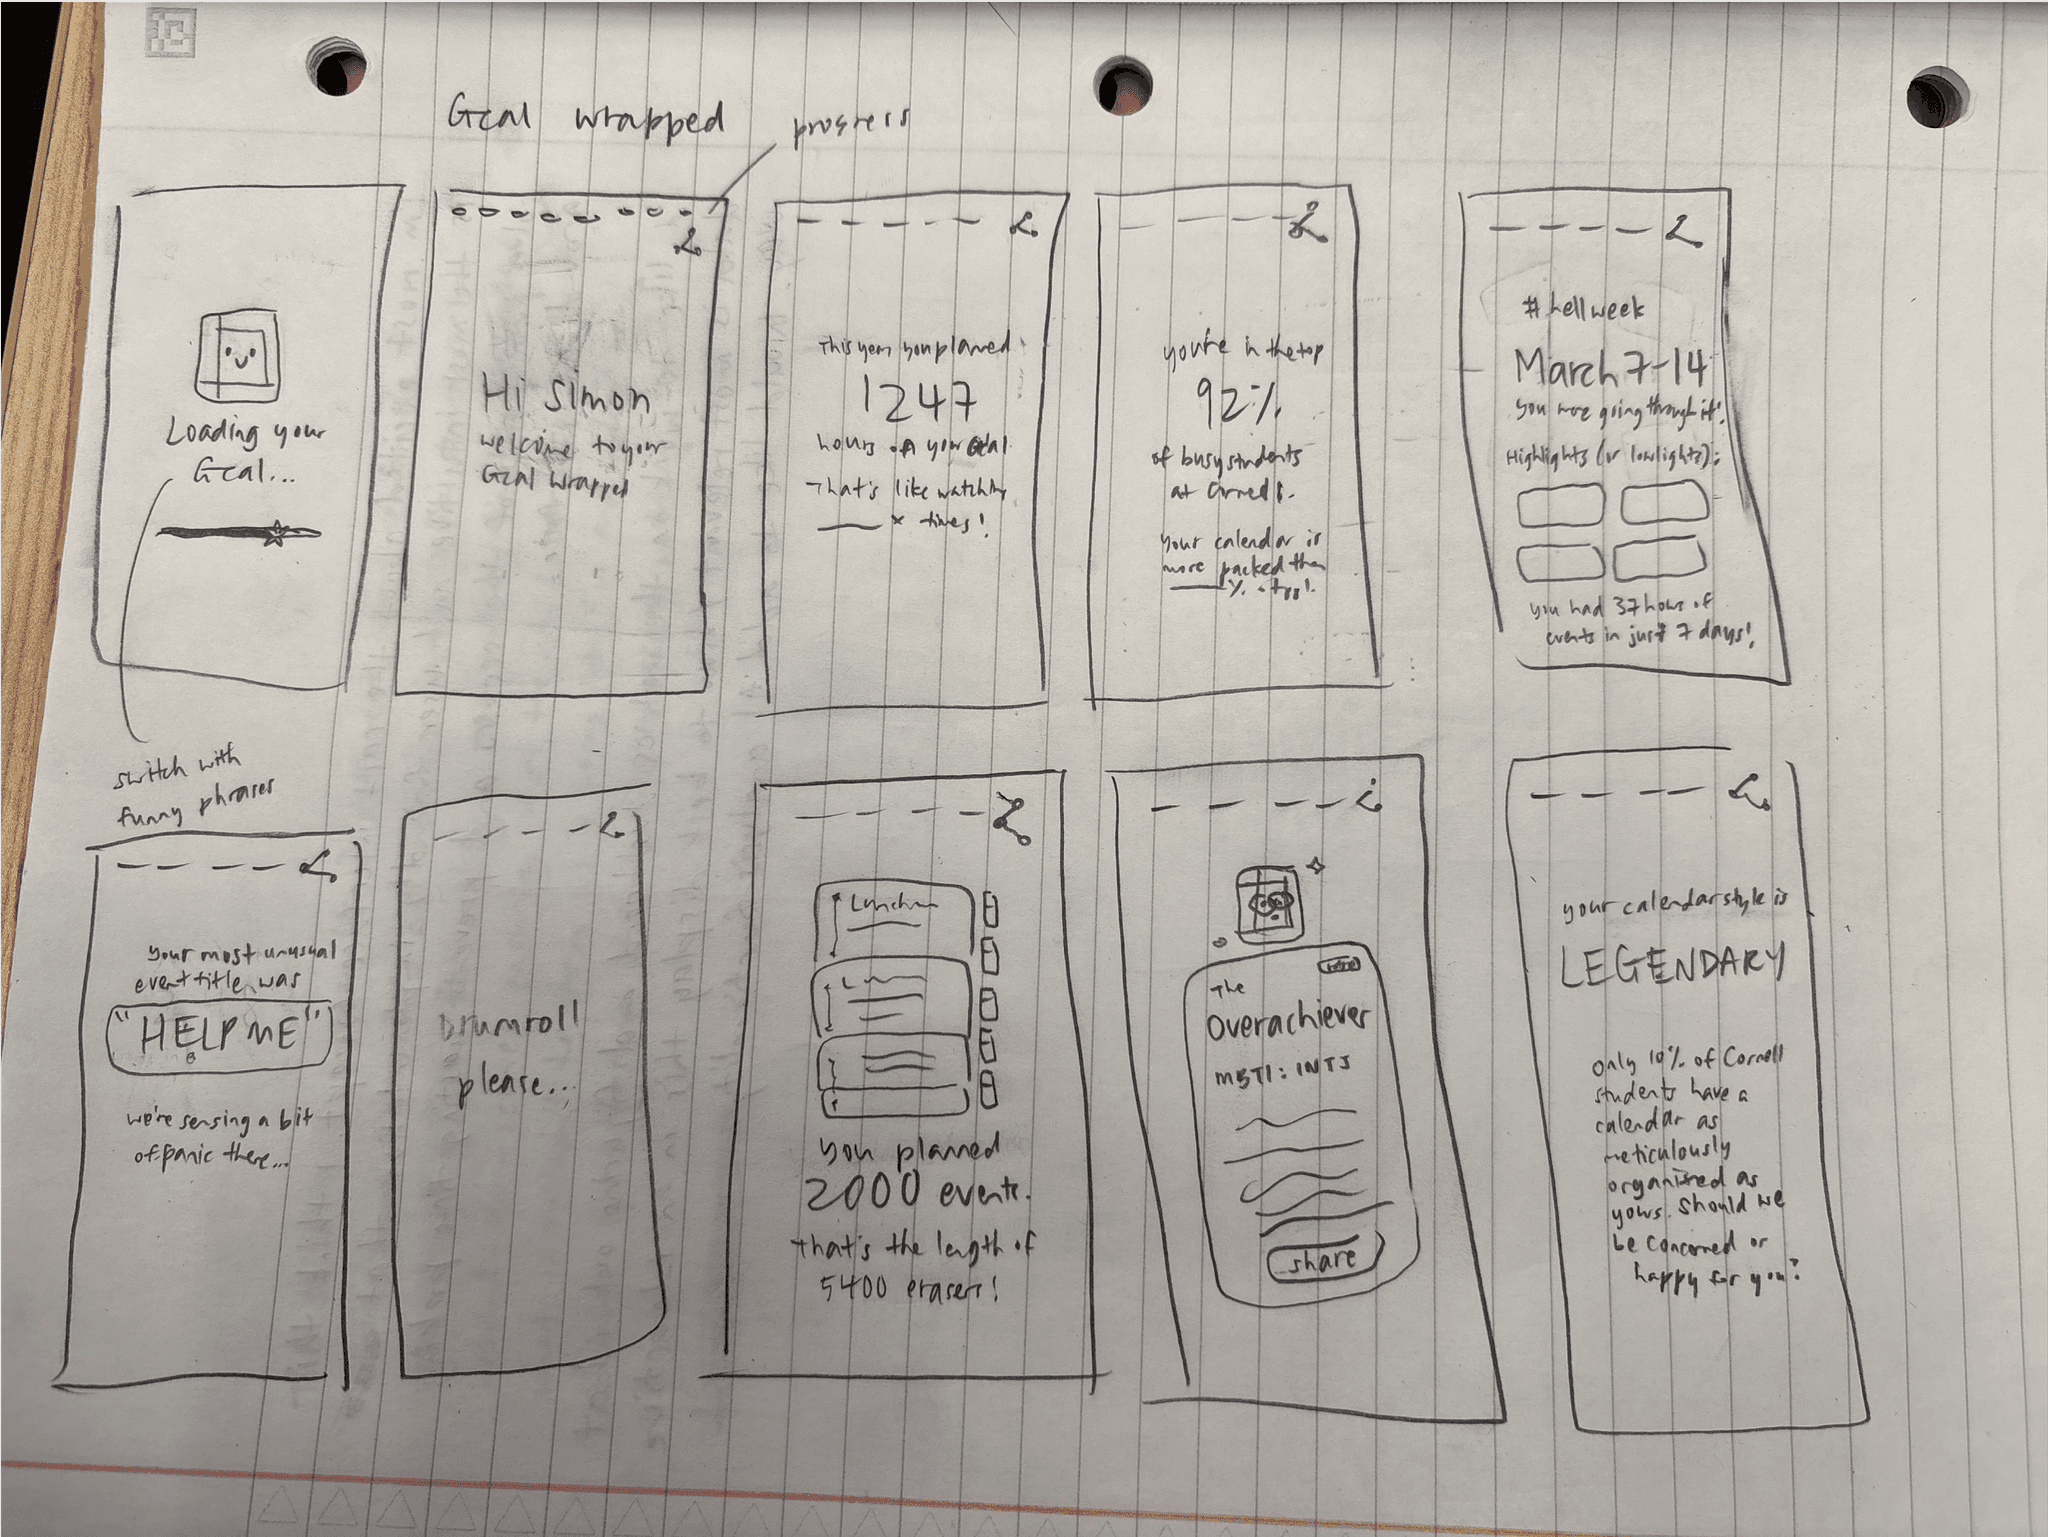 Gcal wrapped
progress
Loading your
Gcal...
switch with
funny phrases
Hi Simon
welcome to your
Gcal wrapped
This year you planned
1247
hours on your Gcal
That's like watching
x times!
you're in the top
92%
of busy students
at Cornell.
your calendar is
more packed than
%
#hellweek
March 7-14
you were going through it!
Highlights (or lowlights):
you had 37 hours of
events in just 7 days!
your most unusual
event title was
"HELP ME"
we're sensing a bit
of panic there...
Drumroll
please...
you planned
2000 events.
That's the length of
5400 erasers!
The
Overachiever
MBTI: INTJ
share
your calendar style is
LEGENDARY
Only 10% of Cornell
students have a
calendar as
meticulously
organized as
yours. Should we
be concerned or
happy for you?